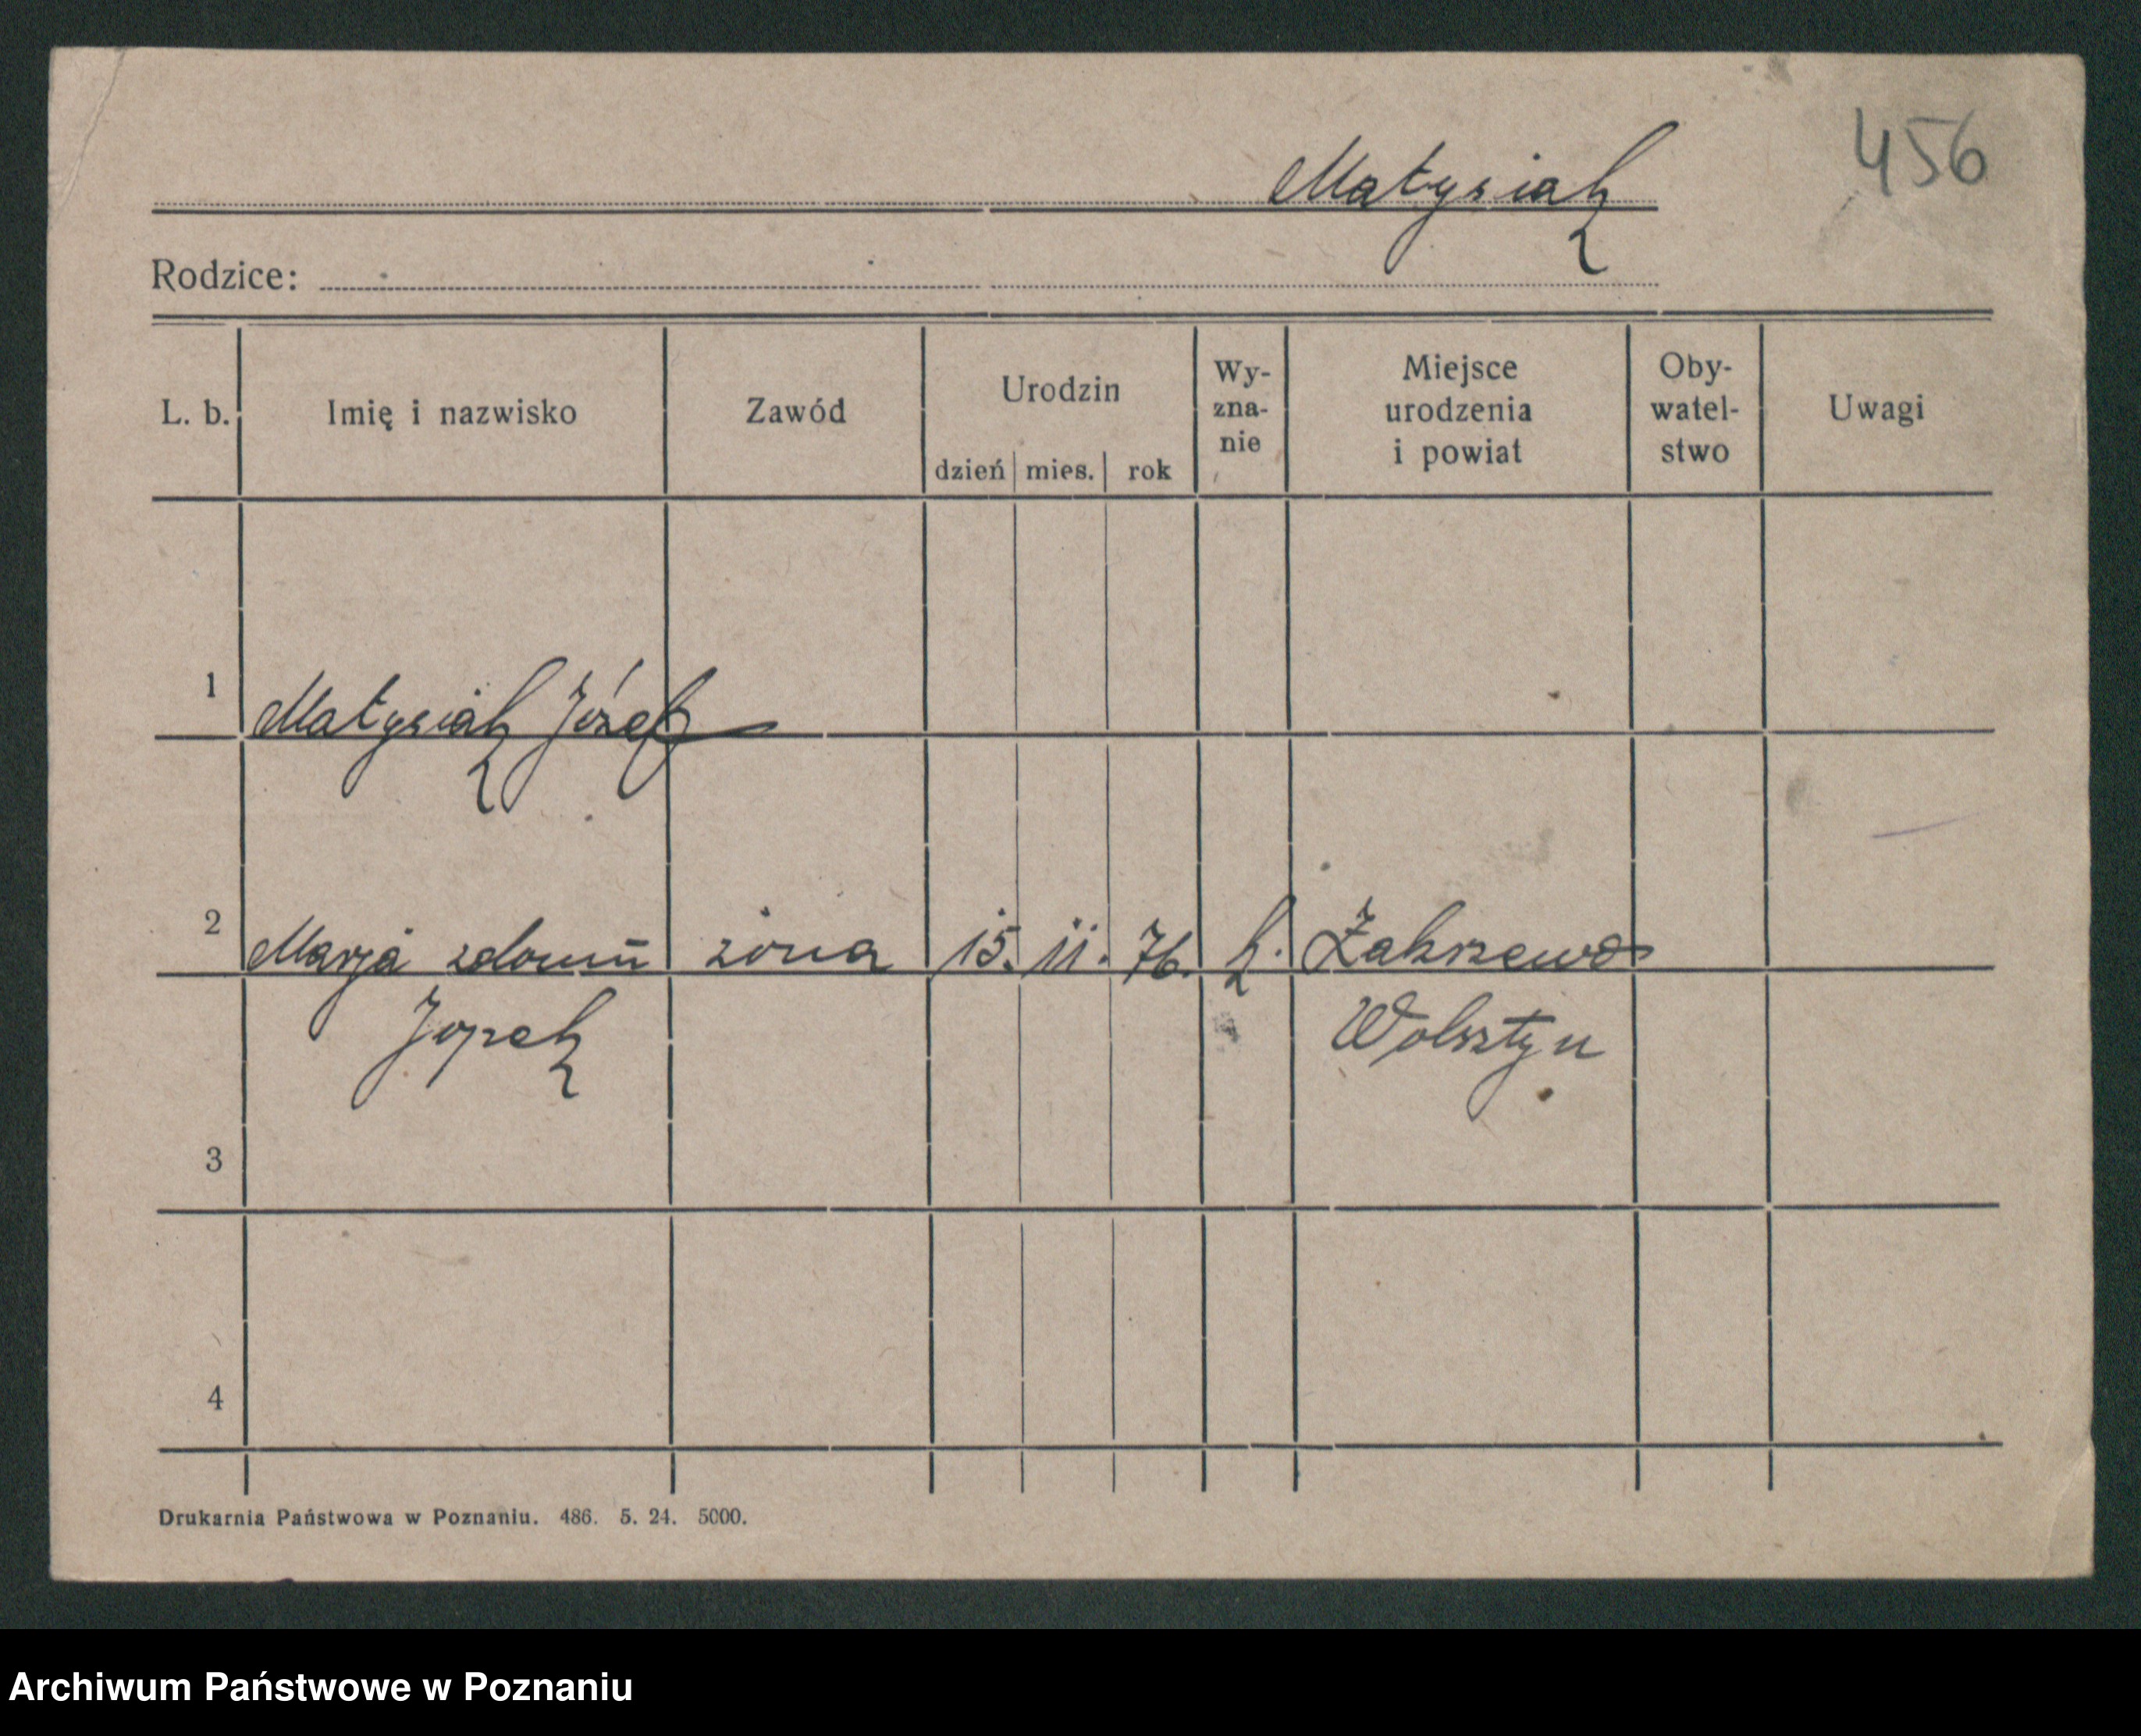 456
Matysiak
Rodzice:
L. b. Imię i nazwisko Zawód Urodzin dzień mies. rok Wy-zna-nie Miejsce urodzenia i powiat Oby-watel-stwo Uwagi
1 Matysiak Józef
2 Marja zdomu żona 15. 11. 76. k. Zakrzewo
Jopek Wolsztyn
3
4
Drukarnia Państwowa w Poznaniu. 486. 5. 24. 5000.
Archiwum Państwowe w Poznaniu